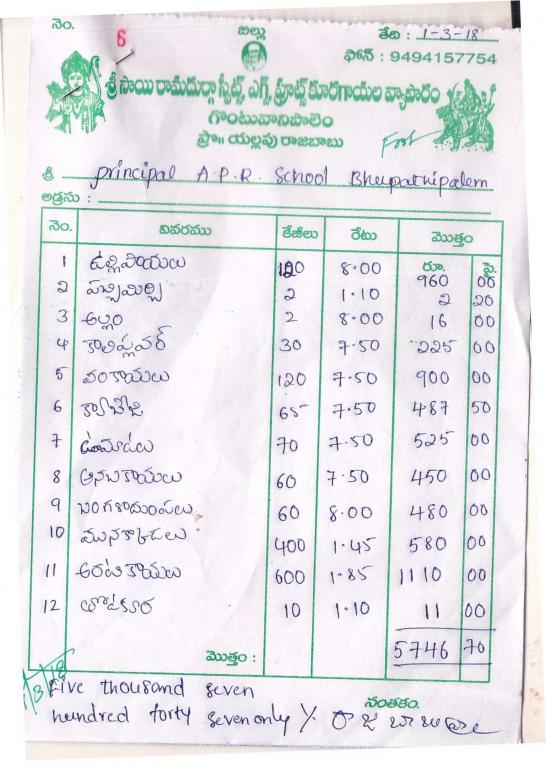 నెం. 6 బిల్లు తేది : 1-3-18
ఫోన్ : 9494157754
శ్రీ సాయి రామదుర్గా స్వీట్స్, ఎగ్స్, ఫ్రూట్స్ కూరగాయల వ్యాపారం
గొంటువానిపాలెం
ప్రొ॥ యల్లపు రాజబాబు
శ్రీ principal A.P.R. School Bhupathipalem
అడ్రసు :
నెం. వివరము కేజీలు రేటు మొత్తం
రూ. పై.
1 ఉల్లిపాయలు 120 8.00 960 00
2 పచ్చిమిర్చి 2 1.10 2 20
3 అల్లం 2 8.00 16 00
4 కాలిఫ్లవర్ 30 7.50 225 00
5 వంకాయలు 120 7.50 900 00
6 క్యాబేజి 65 7.50 487 50
7 టమాటలు 70 7.50 525 00
8 ఆనబకాయలు 60 7.50 450 00
9 బంగాళాదుంపలు 60 8.00 480 00
10 మునక్కాడలు 400 1.45 580 00
11 అరటికాయలు 600 1.85 1110 00
12 తోటకూర 10 1.10 11 00
మొత్తం : 5746 70
Five thousand seven
hundred forty seven only /-
సంతకం.
రాజబాబు